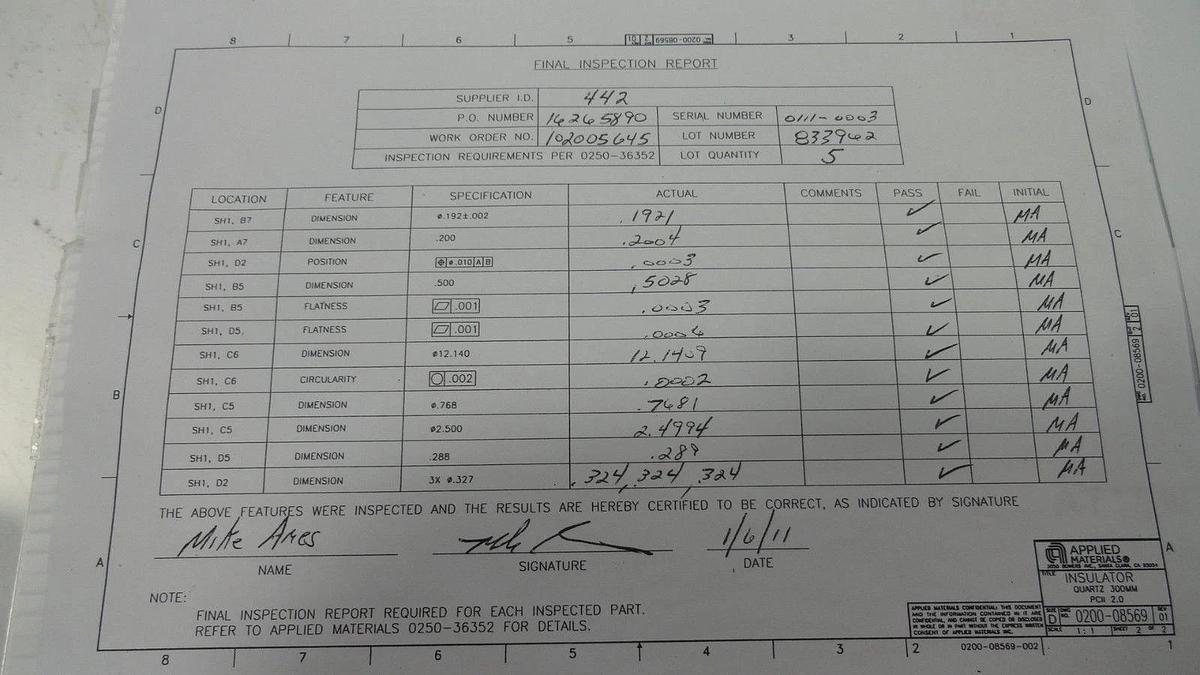 8 7 6 5 3 2 1
0200-08569 2 01
FINAL INSPECTION REPORT
SUPPLIER I.D. 442
P.O. NUMBER 16265890 SERIAL NUMBER 0111-0003
WORK ORDER NO. 102005645 LOT NUMBER 833962
INSPECTION REQUIREMENTS PER 0250-36352 LOT QUANTITY 5
LOCATION FEATURE SPECIFICATION ACTUAL COMMENTS PASS FAIL INITIAL
SH1, B7 DIMENSION ø.192±.002 .1921 ✓ MA
SH1, A7 DIMENSION .200 .2004 ✓ MA
SH1, D2 POSITION ⌖ ø.010 A B .0003 ✓ MA
SH1, B5 DIMENSION .500 .5028 ✓ MA
SH1, B5 FLATNESS ▱ .001 .0003 ✓ MA
SH1, D5 FLATNESS ▱ .001 .0006 ✓ MA
SH1, C6 DIMENSION ø12.140 12.1409 ✓ MA
SH1, C6 CIRCULARITY ○ .002 .0002 ✓ MA
SH1, C5 DIMENSION ø.768 .7681 ✓ MA
SH1, C5 DIMENSION ø2.500 2.4994 ✓ MA
SH1, D5 DIMENSION .288 .289 ✓ MA
SH1, D2 DIMENSION 3X ø.327 .324, .324, .324 ✓ MA
THE ABOVE FEATURES WERE INSPECTED AND THE RESULTS ARE HEREBY CERTIFIED TO BE CORRECT, AS INDICATED BY SIGNATURE
Mike Ares 1/6/11
NAME SIGNATURE DATE
NOTE:
FINAL INSPECTION REPORT REQUIRED FOR EACH INSPECTED PART.
REFER TO APPLIED MATERIALS 0250-36352 FOR DETAILS.
D
C
B
A
D
C
0200-08569 2 01
A
APPLIED
MATERIALS®
3050 BOWERS AVE., SANTA CLARA, CA 95054
TITLE
INSULATOR
QUARTZ 300MM
PCII 2.0
APPLIED MATERIALS CONFIDENTIAL: THIS DOCUMENT
AND THE INFORMATION CONTAINED IN IT ARE
CONFIDENTIAL, AND CANNOT BE COPIED OR DISCLOSED
IN WHOLE OR IN PART WITHOUT THE EXPRESS WRITTEN
CONSENT OF APPLIED MATERIALS INC.
SIZE D DWG NO. 0200-08569 REV 01
SCALE 1:1 SHEET 2 OF 2
0200-08569-002
8 7 6 5 4 3 2 1